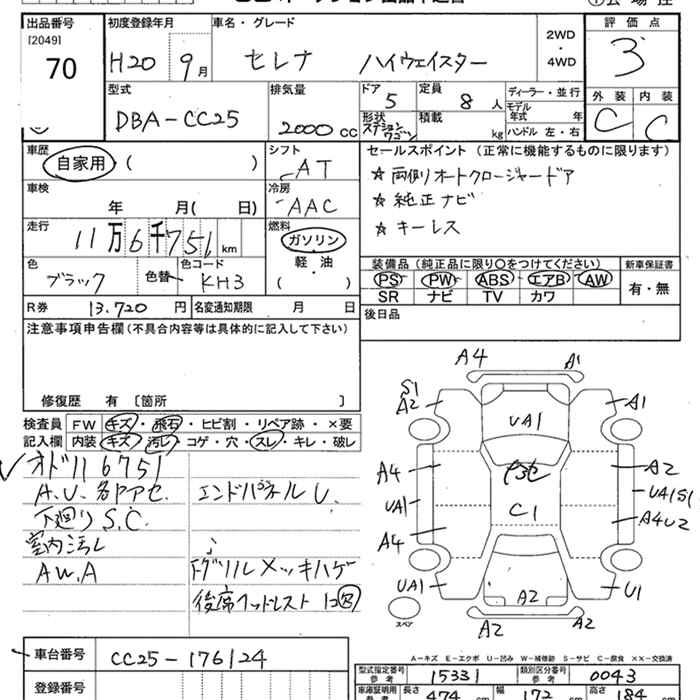 出品番号 初度登録年月 車名・グレード 2WD・4WD 評価点
[2049]
70 H20 9月 セレナ ハイウェイスター 3
型式 排気量 ドア 定員 ディーラー・並行 外装 内装
DBA-CC25 2000cc 5 8人 モデル年式 年 C C
形状 ステションワゴン 積載 kg ハンドル 左・右
車歴 シフト セールスポイント (正常に機能するものに限ります)
自家用 ( ) AT ☆両側オートクロージャードア
車検 冷房 ☆純正ナビ
年 月( 日) AAC ☆キーレス
走行 燃料
11万6千751km ガソリン
軽・油
( )
色 色替 色コード 装備品(純正品に限り○をつけてください) 新車保証書
ブラック KH3 PS PW ABS エアB AW 有・無
SR ナビ TV カワ
R券 13.720円 名変通知期限 月 日 後日品
注意事項申告欄(不具合内容等は具体的に記入して下さい)
修復歴 有 [箇所 ]
検査員 FW キズ・飛石・ヒビ割・リペア跡・×要
記入欄 内装 キズ・汚レ・コゲ・穴・スレ・キレ・破レ
A4 A1
S1
A2 A1
UA1
A4 A2
UA1 C1 UA1S1
A4 A4U2
UA1 A2 U1
スペア A2 A2
A.U.各アセ. エンドパネルU.
下廻りS.C.
室内汚レ
AW.A Fグリルメッキハゲ
後席ヘッドレスト1コ欠
A-キズ E-エクボ U-凹み W-補修跡 S-サビ C-腐食 ××-交換済
車台番号 CC25-176124
登録番号
型式指定番号 参考 15331 類別区分番号 参考 0043
車庫証明用 参考 長さ 474cm 幅 172cm 高さ 184cm